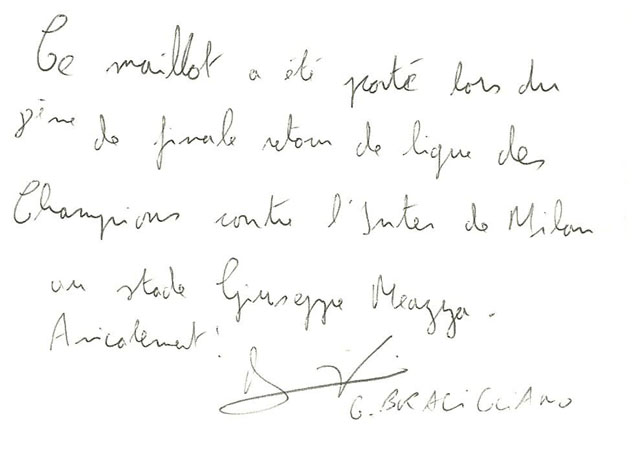 Ce maillot a été porté lors du
8ème de finale retour de ligue des
Champions contre l'Inter de Milan
au stade Giuseppe Meazza.
Amicalement!
G. BRACIGLIANO